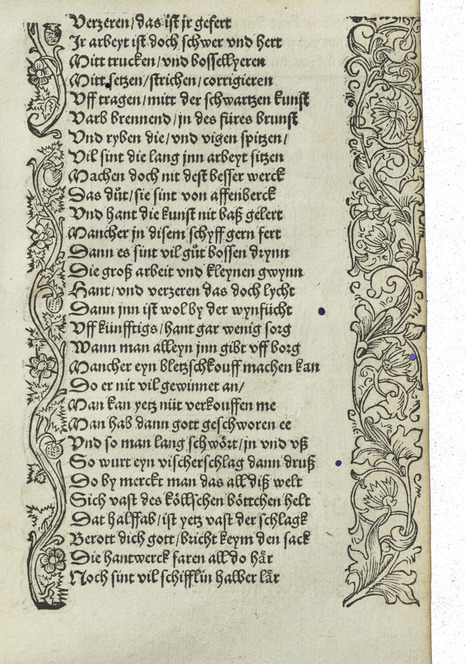 Verzeren/das ist jr gefert
Jr arbeyt ist doch schwer vnd hert
Mitt trucken/vnd bosselyeren
Mitt setzen/strichen/corrigieren
Vff tragen/mitt der schwartzen kunst
Varb brennend/jn des füres brunst
Vnd ryben die/vnd vigen spitzen/
Vil sint die lang jnn arbeyt sitzen
Machen doch nit dest besser werck
Das düt/sie sint von affenberck
Vnd hant die kunst nit baß gelert
Mancher jn disem schyff gern fert
Dann es sint vil gůt bossen drynn
Die groß arbeit vnd kleynen gwynn
Hant/vnd verzeren das doch lycht
Dann jnn ist wol by der wynfücht
Vff künfftigs/hant gar wenig sorg
Wann man alleyn jnn gibt vff borg
Mancher eyn bletzschkouff machen kan
Do er nit vil gewinnet an/
Man kan yetz nüt verkouffen me
Man hab dann gott geschworen ee
Vnd so man lang schwört/jn vnd vß
So wurt eyn vischerschlag dann druß
Do by merckt man das all diß welt
Sich vast des köllschen böttchen helt
Dat halffab/ist yetz vast der schlagk
Berott dich gott/bricht keym den sack
Die hantwerck faren all do här
Noch sint vil schifflin halber lär